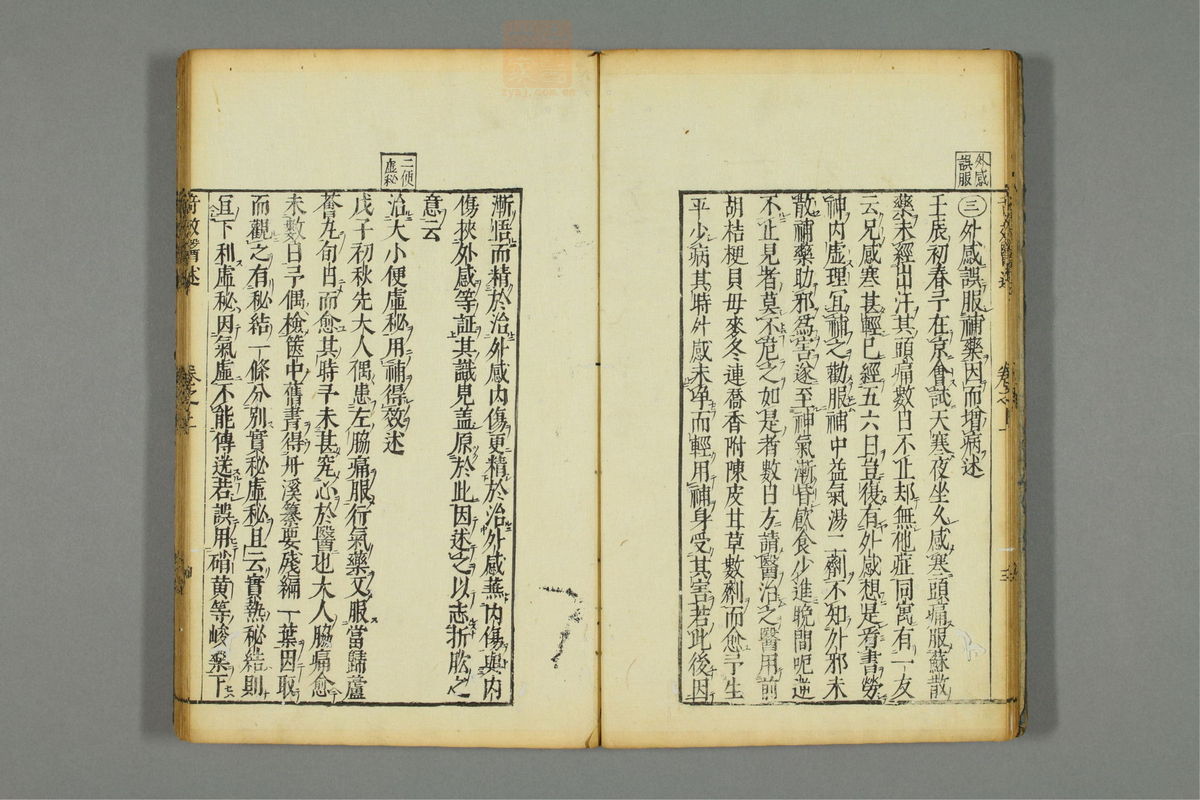 外感
誤服
㊂外感誤服補藥因而增病述
壬辰初春予在京會試天寒夜坐久感寒頭痛服蘇散
藥未經出汗其頭痛數日不止却無他症同寓有一友
云兄感寒甚輕已經五六日豈復有外感想是看書勞
神内虛理宜補之勸服補中益氣湯二劑不知外邪未
散補藥助邪爲害遂至神氣漸昏飲食少進晚間呃逆
不止見者莫不危之如是者數日方請醫治之醫用前
胡桔梗貝母麥冬連喬香附陳皮甘草數劑而愈予生
平少病其時外感未淨而輕用補身受其害若此後因
漸悟而精於治外感内傷更精於治外感兼内傷與内
傷挾外感等証其識見盖原於此因述之以志折肱之
意云
二便
虛秘
治大小便虛秘用補得效述
戊子初秋先大人偶患左脇痛服行氣藥又服當歸蘆
薈丸旬日而愈其時予未甚究心於醫也大人脇痛愈
未數日予偶檢篋中舊書得丹溪纂要殘編一葉因取
而觀之有秘結一條分別實秘虛秘且云實熱秘結則
宜下利虛秘因氣虛不能傳送若誤用硝黄等峻藥下
奇效醫述
卷之上